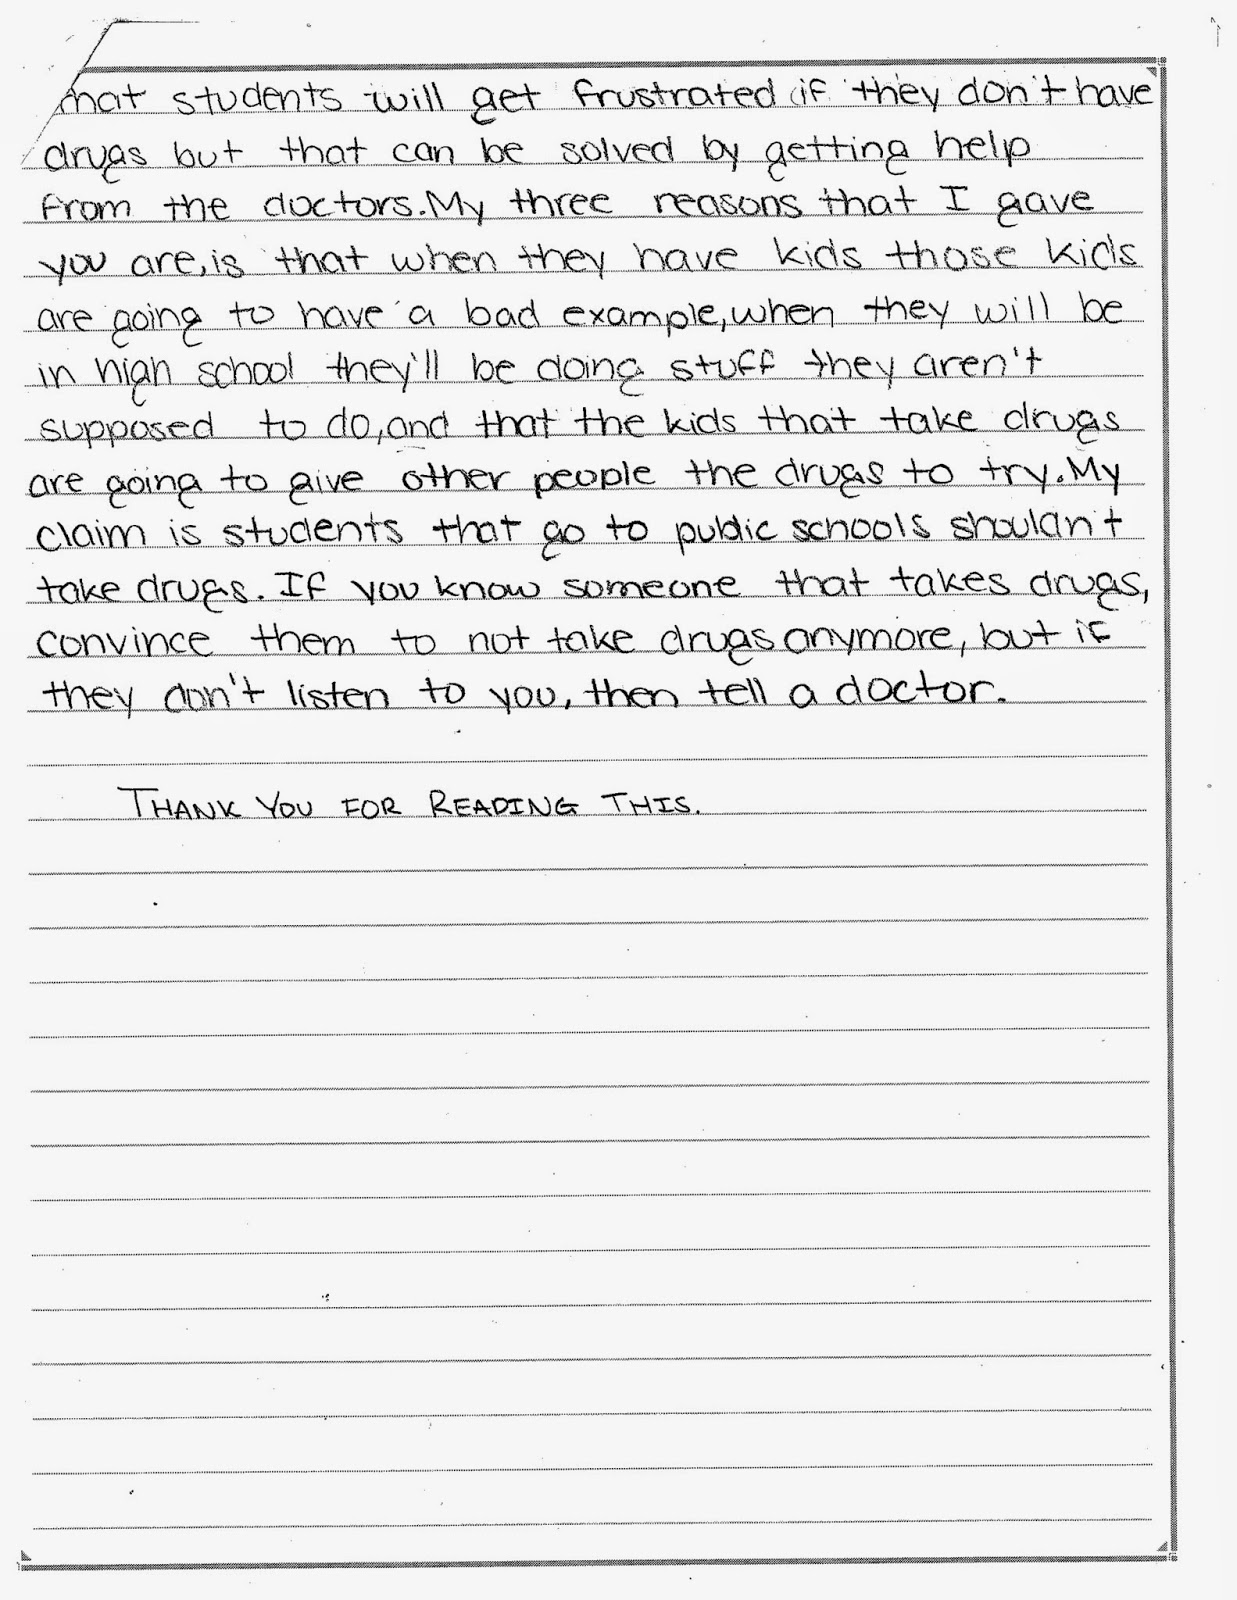 that students will get frustrated if they don't have
drugs but that can be solved by getting help
from the doctors. My three reasons that I gave
you are, is that when they have kids those kids
are going to have a bad example, when they will be
in high school they'll be doing stuff they aren't
supposed to do, and that the kids that take drugs
are going to give other people the drugs to try. My
claim is students that go to public schools shouldn't
take drugs. If you know someone that takes drugs,
convince them to not take drugs anymore, but if
they don't listen to you, then tell a doctor.
THANK YOU FOR READING THIS.